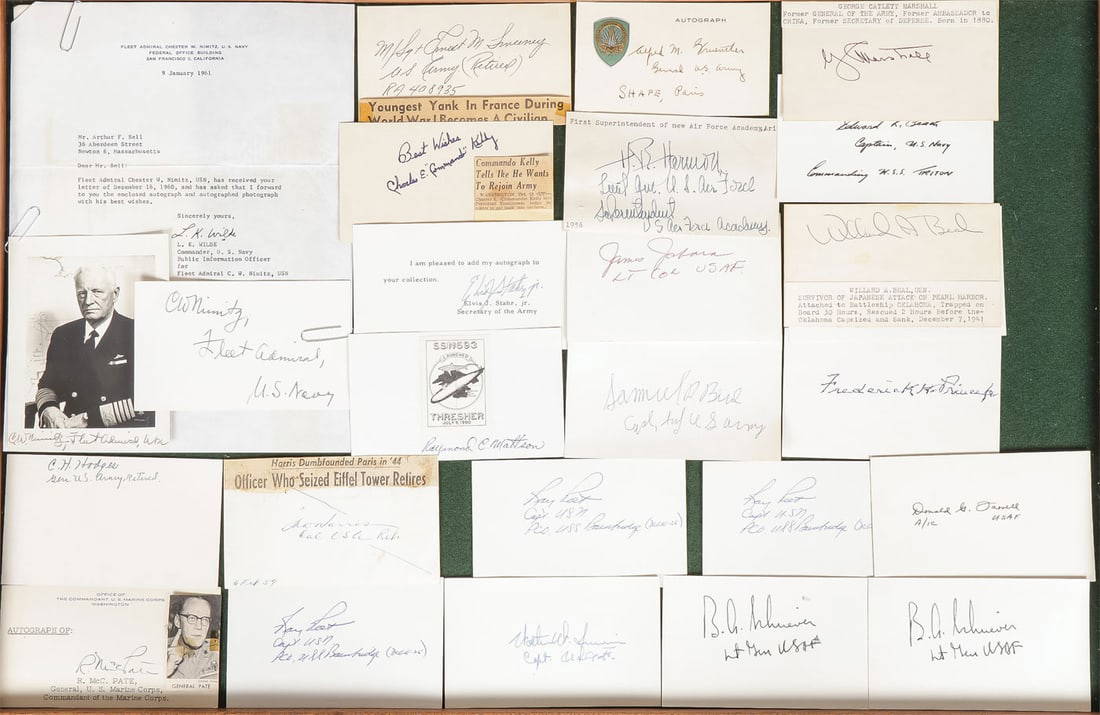 FLEET ADMIRAL CHESTER W. NIMITZ, U.S. NAVY
FEDERAL OFFICE BUILDING
SAN FRANCISCO 2, CALIFORNIA
9 January 1961
Mr. Arthur F. Bell
36 Aberdeen Street
Newton 6, Massachusetts
Dear Mr. Bell:
Fleet Admiral Chester W. Nimitz, USN, has received your
letter of December 16, 1960, and has asked that I forward
to you the enclosed autograph and autographed photograph
with his best wishes.
Sincerely yours,
L. K. Wilde
L. K. WILDE
Commander, U. S. Navy
Public Information Officer
for
Fleet Admiral C. W. Nimitz, USN
CW Nimitz,
Fleet Admiral,
U.S. Navy
CW Nimitz, Fleet Admiral, USN
M/Sgt Ernest M. Sweeney
US Army (Retired)
RA 408935
Youngest Yank In France During
World War I Becomes A Civilian
AUTOGRAPH
Alfred M. Gruenther
General US Army
SHAPE, Paris
GEORGE CATLETT MARSHALL
Former GENERAL OF THE ARMY, Former AMBASSADOR to
CHINA, Former SECRETARY of DEFENSE. Born in 1880.
G C Marshall
Best Wishes
Charles E. "Commando" Kelly
Commando Kelly
Tells Ike He Wants
To Rejoin Army
First Superintendent of new Air Force Academy
H. R. Harmon
Lieut Gen. U.S. Air Force
Superintendent
US Air Force Academy.
1956
Edward L. Beach
Captain, U.S. Navy
Commanding U.S.S. TRITON
I am pleased to add my autograph to
your collection.
Elvis J. Stahr, jr.
Elvis J. Stahr, jr.
Secretary of the Army
James Jabara
LT COL USAF
Willard A Beal
WILLARD A. BEAL, USN.
SURVIVOR OF JAPANESE ATTACK ON PEARL HARBOR.
Attached to Battleship OKLAHOMA, Trapped on
Board 30 Hours, Rescued 2 Hours Before the
Oklahoma Capsized and Sank, December 7, 1941
SSN593
LAUNCHED
THRESHER
JULY 9, 1960
Raymond C. Mattson
Samuel R Bird
Capt Inf U S Army
Frederick H.
C. H. Hodges
Gen US. Army, Retired.
Harris Dumbfounded Paris in '44
Officer Who Seized Eiffel Tower Retires
Harris
Col USA Ret.
6 Feb 59
Ray Peet
Capt USN
PCO USS Bainbridge
Ray Peet
Capt USN
PCO USS Bainbridge
Donald G. Farrell
A/1c USAF
OFFICE OF
THE COMMANDANT, U.S. MARINE CORPS
WASHINGTON
AUTOGRAPH OF:
R McC Pate
R. McC. PATE,
General, U. S. Marine Corps,
Commandant of the Marine Corps.
GENERAL PATE
Ray Peet
Capt USN
PCO, USS Bainbridge
Capt.
B.A. Schriever
Lt Gen USAF
B.A. Schriever
Lt Gen USAF